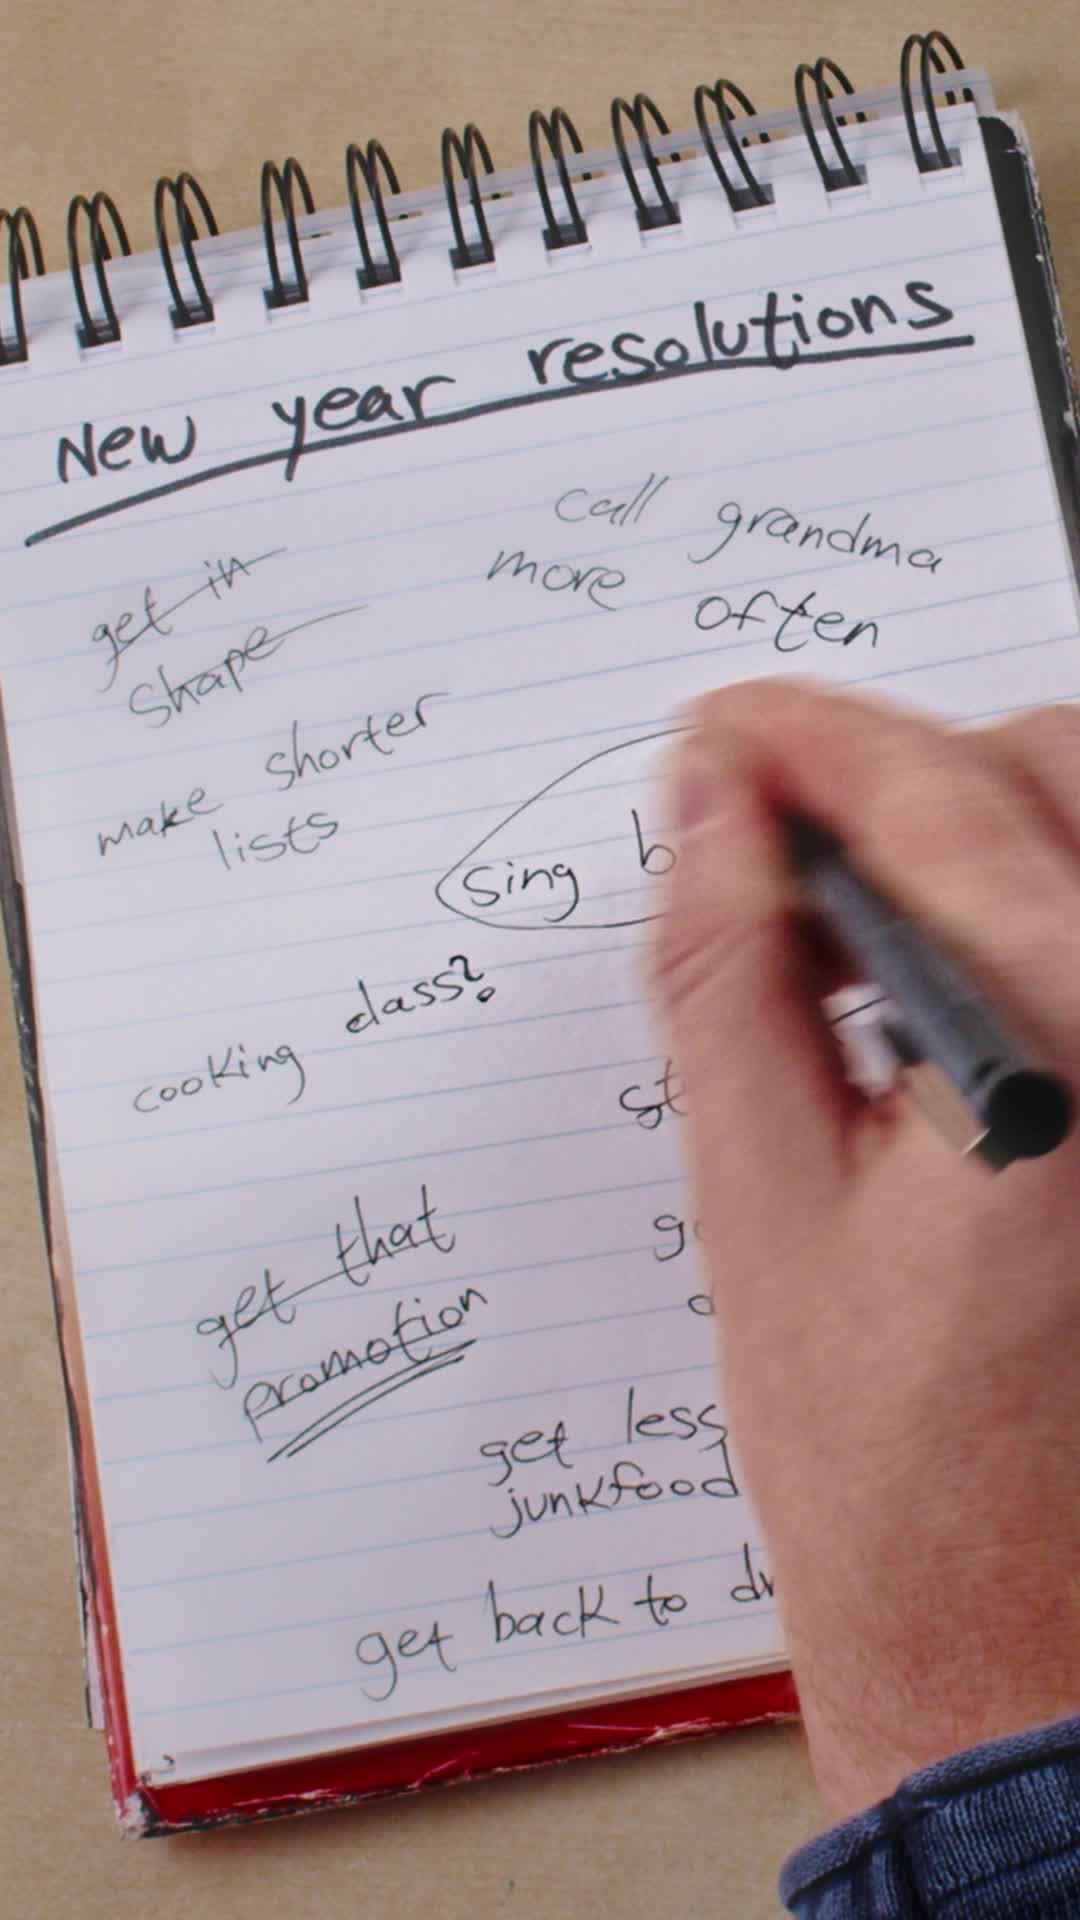 New year resolutions
get in
shape
call grandma
more often
make shorter
lists
sing
cooking class?
get that
promotion
get less
junkfood
get back to